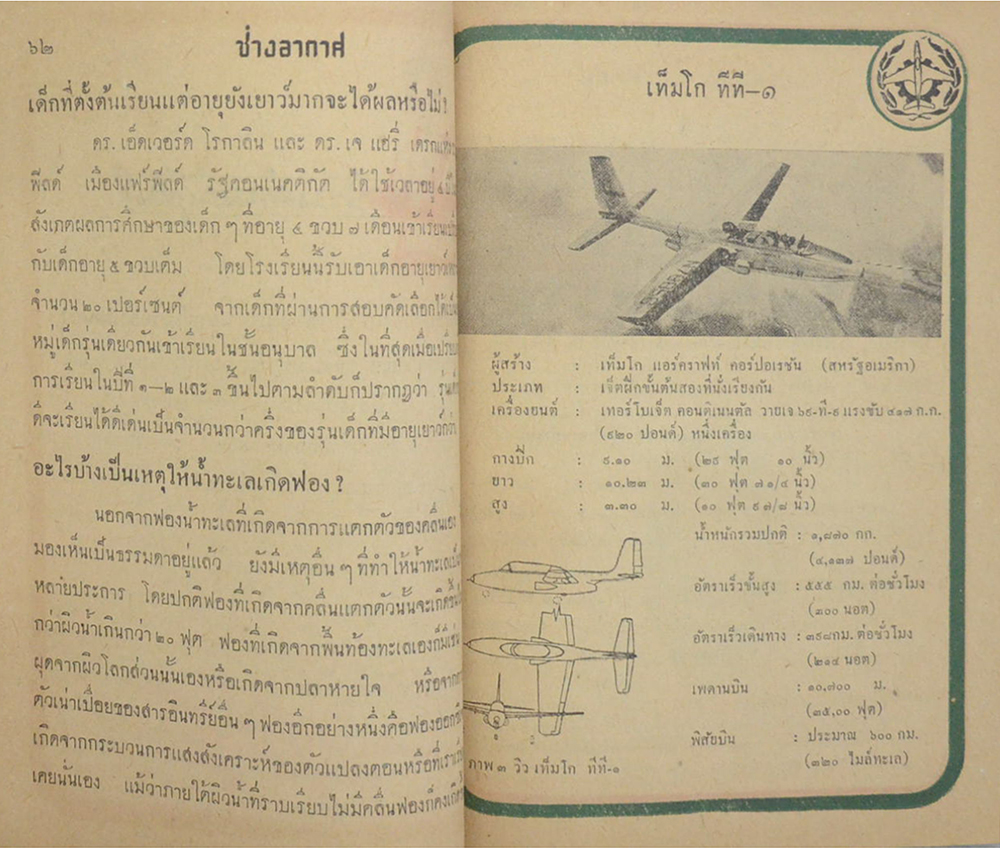 ๖๒
ช่างอากาศ
เด็กที่ตั้งต้นเรียนแต่อายุยังเยาว์มากจะได้ผลหรือไม่?
ดร. เอ็ดเวอร์ด โรกาลิน และ ดร. เจ แฮรี่
ฟิลด์ เมืองแฟร์ฟิลด์ รัฐคอนเนคติกัต ได้ใช้เวลาอยู่ ๔
สังเกตผลการศึกษาของเด็ก ๆ ที่อายุ ๔ ขวบ ๗ เดือนเข้าเรียน
กับเด็กอายุ ๕ ขวบเต็ม โดยโรงเรียนนี้รับเอาเด็กอายุเยาว์
จำนวน ๒๐ เปอร์เซนต์ จากเด็กที่ผ่านการสอบคัดเลือกได้
หมู่เด็กรุ่นเดียวกันเข้าเรียนในชั้นอนุบาล ซึ่งในที่สุดเมื่อ
การเรียนในปีที่ ๑–๒ และ ๓ ขึ้นไปตามลำดับก็ปรากฏว่า
ดีจะเรียนได้ดีเด่นเป็นจำนวนกว่าครึ่งของรุ่นเด็กที่มีอายุเยาว์กว่า
อะไรบ้างเป็นเหตุให้น้ำทะเลเกิดฟอง ?
นอกจากฟองน้ำทะเลที่เกิดจากการแตกตัวของคลื่นเอง
มองเห็นเป็นธรรมดาอยู่แล้ว ยังมีเหตุอื่น ๆ ที่ทำให้น้ำทะเล
หลายประการ โดยปกติฟองที่เกิดจากคลื่นแตกตัวนั้นจะเกิด
กว่าผิวน้ำเกินกว่า ๒๐ ฟุต ฟองที่เกิดจากพื้นท้องทะเลเองก็มี
ผุดจากผิวโลกส่วนนั้นเองหรือเกิดจากปลาหายใจ หรือจาก
ตัวเน่าเปื่อยของสารอินทรีย์อื่น ๆ ฟองอีกอย่างหนึ่งคือฟอง
เกิดจากกระบวนการแสงสังเคราะห์ของตัวแปลงตอนหรือที่
เคยนั่นเอง แม้ว่าภายใต้ผิวน้ำที่ราบเรียบไม่มีคลื่นฟองก็คง
เท็มโก ทีที–๑
ผู้สร้าง : เท็มโก แอร์คราฟท์ คอร์ปอเรชัน (สหรัฐอเมริกา)
ประเภท : เจ็ตฝึกขั้นต้นสองที่นั่งเรียงกัน
เครื่องยนต์ : เทอร์โบเจ็ต คอนติเนนตัล วายเจ ๖๙-ที-๙ แรงขับ ๔๑๗ ก.ก.
(๙๒๐ ปอนด์) หนึ่งเครื่อง
กางปีก : ๙.๑๐ ม. (๒๙ ฟุต ๑๐ นิ้ว)
ยาว : ๑๐.๒๓ ม. (๓๐ ฟุต ๗ ๑/๔ นิ้ว)
สูง : ๓.๓๐ ม. (๑๐ ฟุต ๙ ๗/๘ นิ้ว)
น้ำหนักรวมปกติ : ๑,๘๗๐ กก.
(๔,๑๓๗ ปอนด์)
อัตราเร็วขั้นสูง : ๕๕๕ กม. ต่อชั่วโมง
(๓๐๐ นอต)
อัตราเร็วเดินทาง : ๓๙๘กม. ต่อชั่วโมง
(๒๑๔ นอต)
เพดานบิน : ๑๐,๗๐๐ ม.
(๓๕,๐๐ ฟุต)
พิสัยบิน : ประมาณ ๖๐๐ กม.
(๓๒๐ ไมล์ทะเล)
ภาพ ๓ วิว เท็มโก ทีที-๑